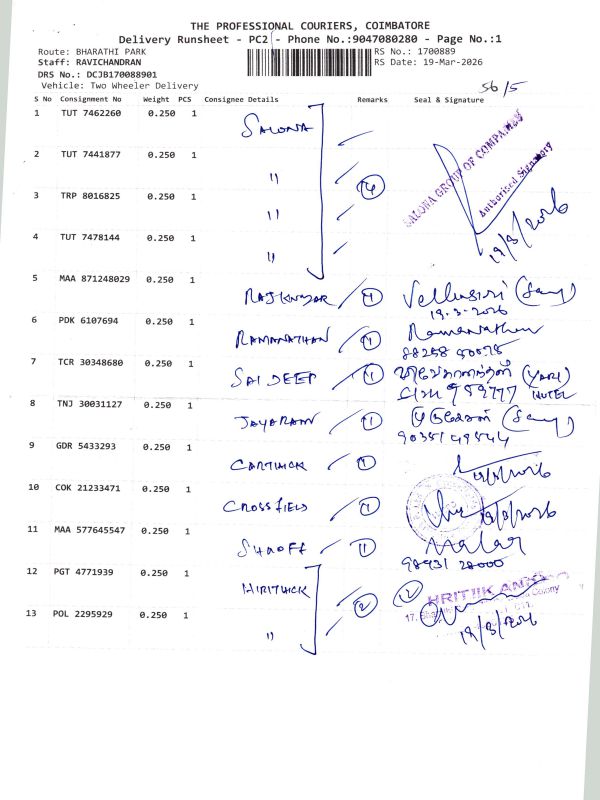 THE PROFESSIONAL COURIERS, COIMBATORE
Delivery Runsheet - PC2 - Phone No.:9047080280 - Page No.:1
Route: BHARATHI PARK RS No.: 1700889
Staff: RAVICHANDRAN RS Date: 19-Mar-2026
DRS No.: DCJB170088901
Vehicle: Two Wheeler Delivery 56/5
S No Consignment No Weight PCS Consignee Details Remarks Seal & Signature
1 TUT 7462260 0.250 1 SALONA
SALONA GROUP OF COMPANIES
Authorised Signatory
2 TUT 7441877 0.250 1 "
4
3 TRP 8016825 0.250 1 "
19/3/2026
4 TUT 7478144 0.250 1 "
5 MAA 871248029 0.250 1 RAJKUMAR 1 Vellusiri
19.3.2026
6 PDK 6107694 0.250 1 RAMANATHAN 1 Ramanathan
88258
7 TCR 30348680 0.250 1 SAIDEEP 1
8 TNJ 30031127 0.250 1 JAYARAM 1
9 GDR 5433293 0.250 1 CARTHICK 1 19/3/2026
10 COK 21233471 0.250 1 CROSSFIELD 1 19/3/2026
11 MAA 577645547 0.250 1 SHROFF 1 Malar
98431 28000
12 PGT 4771939 0.250 1 HIRITHICK
2 2
HRITIIK
13 POL 2295929 0.250 1 "
19/3/2026